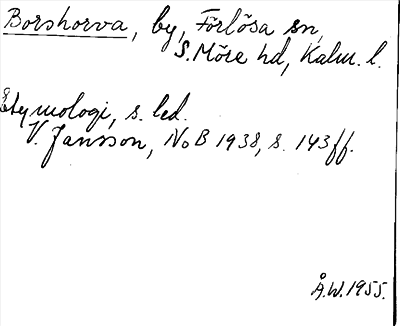 Borshorva, by, Förlösa sn,
S. Möre hd, Kalm. l.
Etymologi, s. led.
V. Jansson, NoB 1938, s. 143ff.
Å.W. 1955.